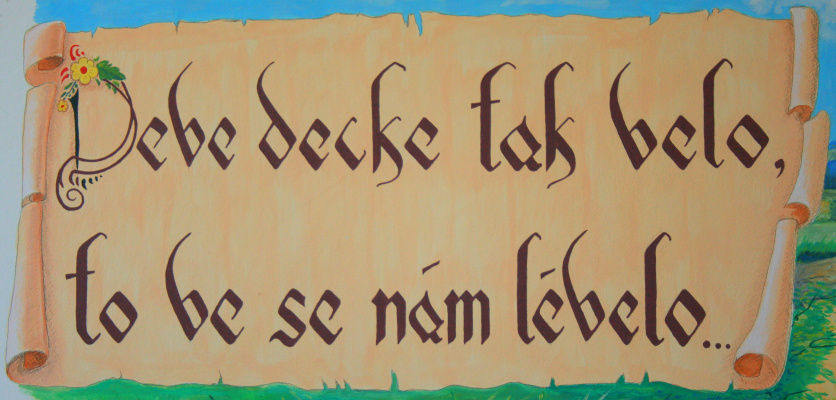 Debe decke tak belo,
to be se nám lébelo...